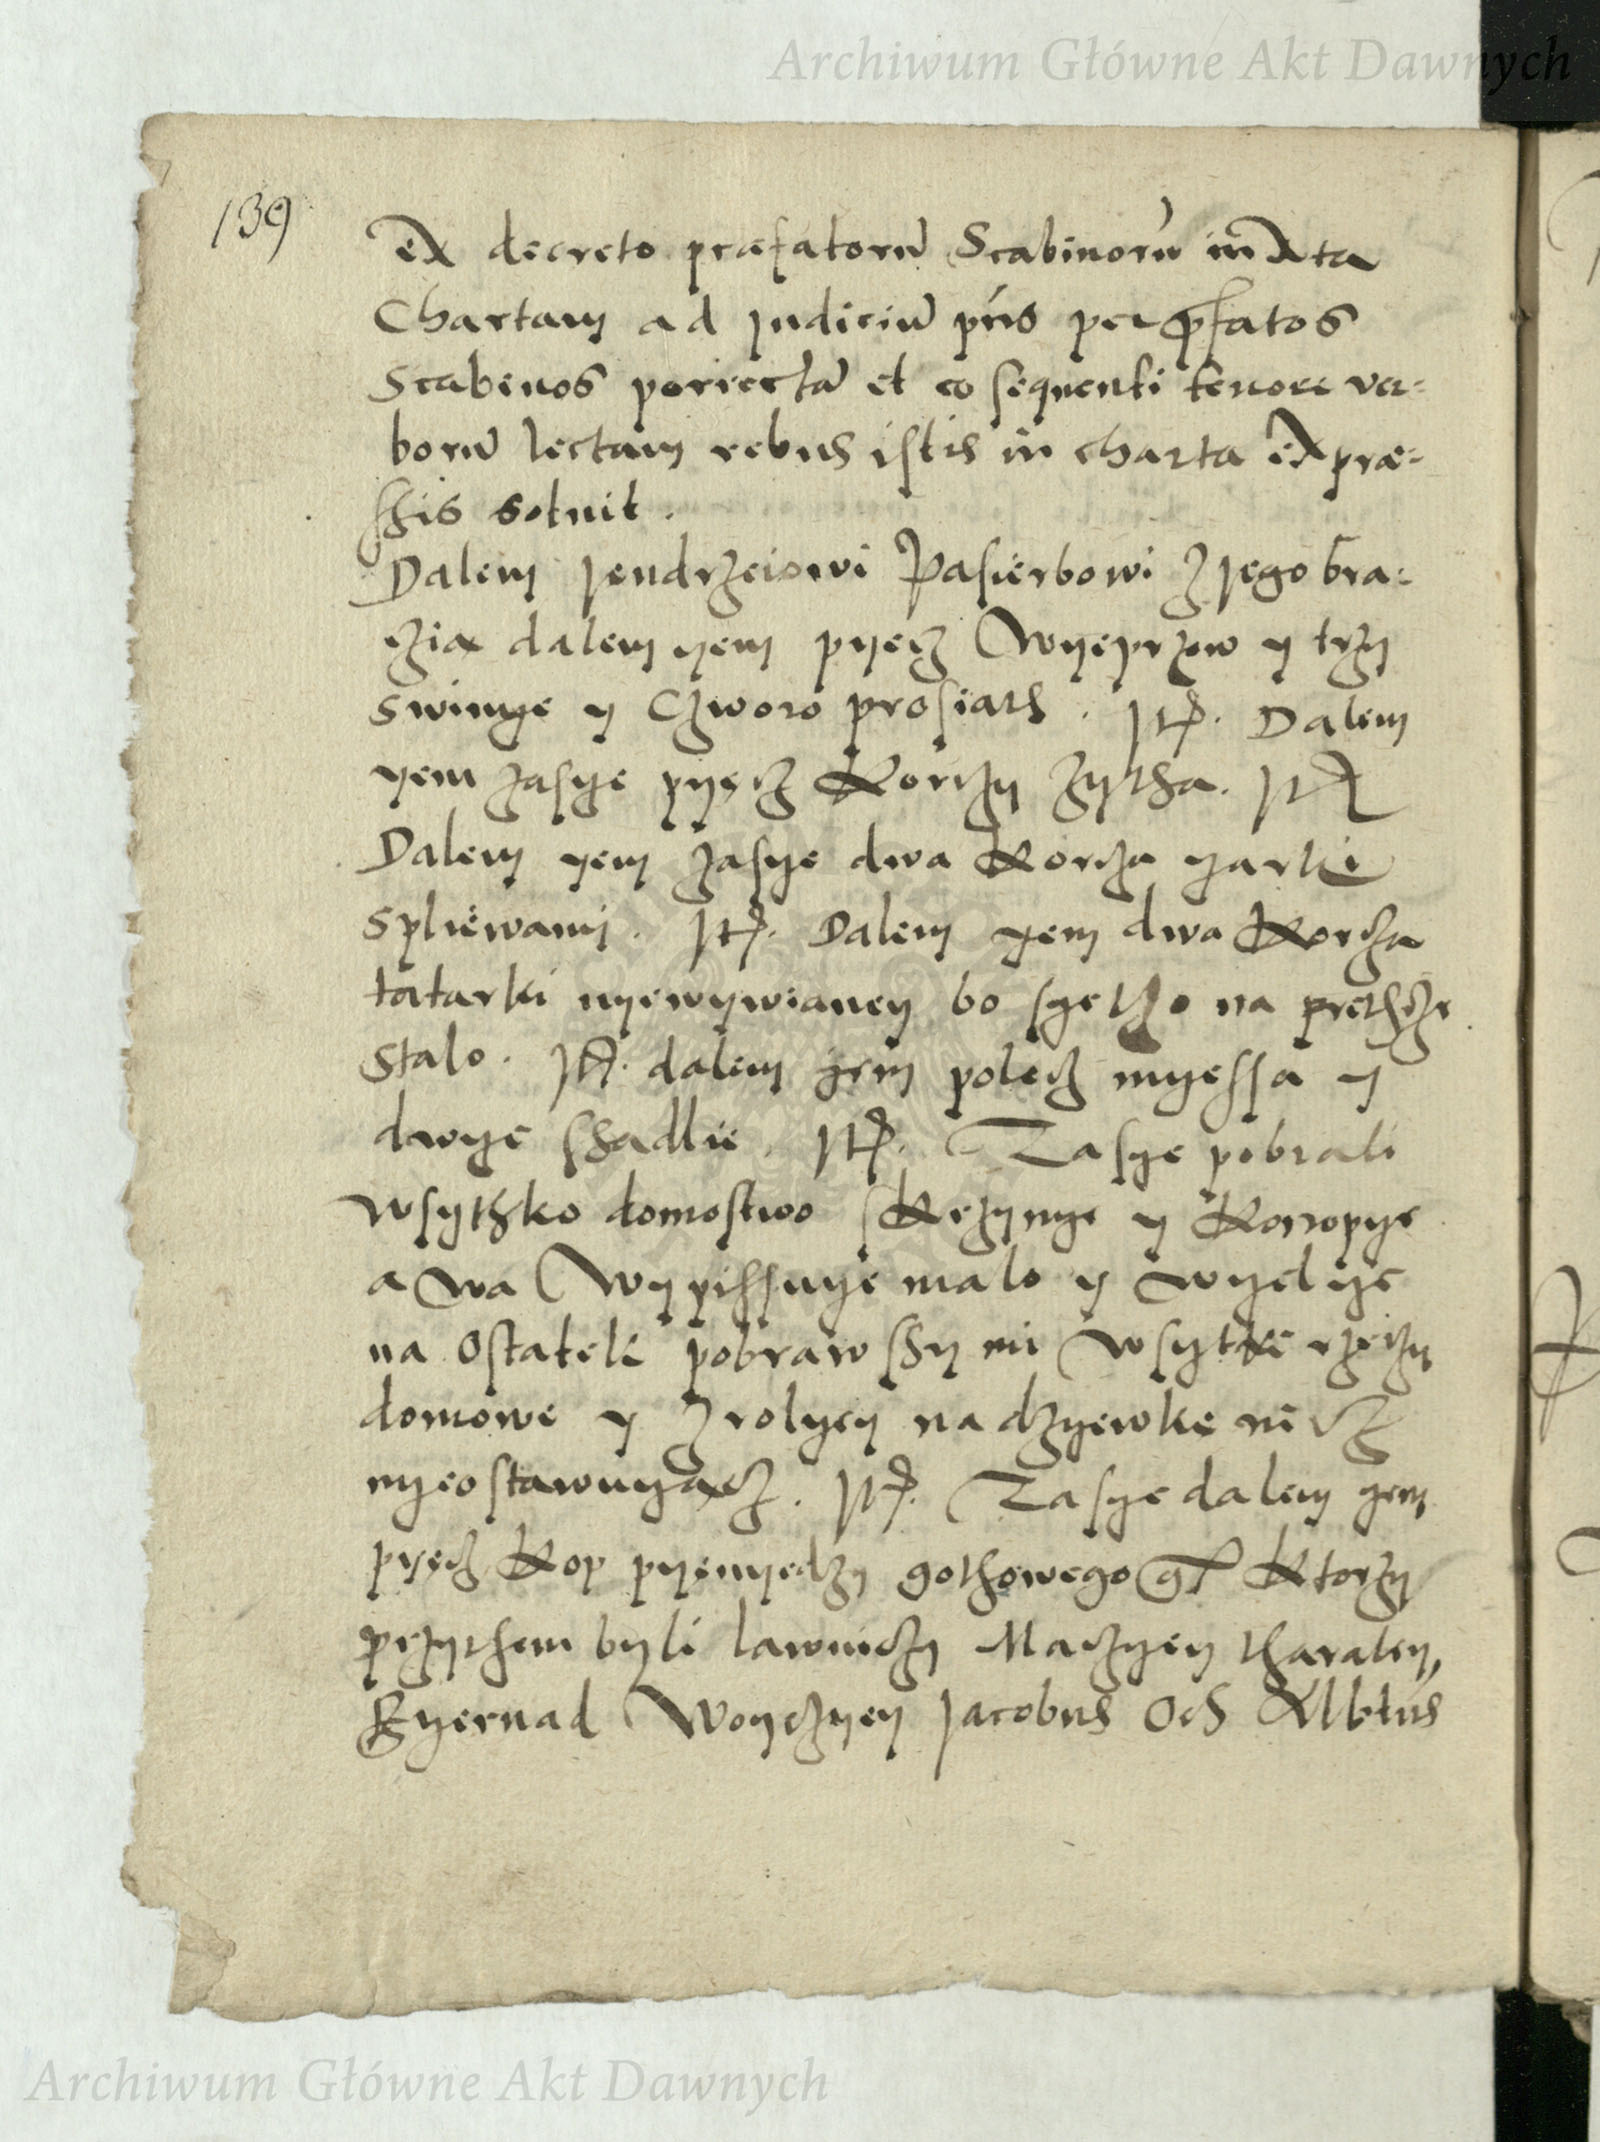 Archiwum Główne Akt Dawnych
139
ex decreto præfatorū Scabinorū iuxta
Chartam ad Judiciū pns per præfatos
Scabinos porrectā et eo sequenti tenore ver=
borū lectam rebus istis in charta expræ=
ssis soluit.
Dalem Jendrzeiowi Pasierbowi z Jego bra=
czia dalem yem pyecz Wyeprzow y trzy
swinye y Czworo prosiath. Itē. Dalem
yem zasye pyęcz Korczy zytha. Itē
Dalem yem zasye dwa Korcza yarki
spliewami. Itē. Dalem yem dwa Korcza
tatarki nyewywianey bo sye tho na prethcze
stalo. Itē. dalem yem polecz myessa y
dwye shadlie. Itē. Zasye pobrali
wsythko domostwo skrzynye y Konopye
a wa Wypissuye malo y wyelye
na Ostatek pobrawshy mi wsytki rzeczy
domowe y z rolyey na dzyewke nicz
nyeostawuyącz. Itē. Zasye dalem yem
pyęcz Kop pyenyedzy gothowego gr Ktorzy
przythem byli lawniczy Maczyey tharaley,
Byernad Woyczyey Jacobus Och Albtus
Archiwum Główne Akt Dawnych